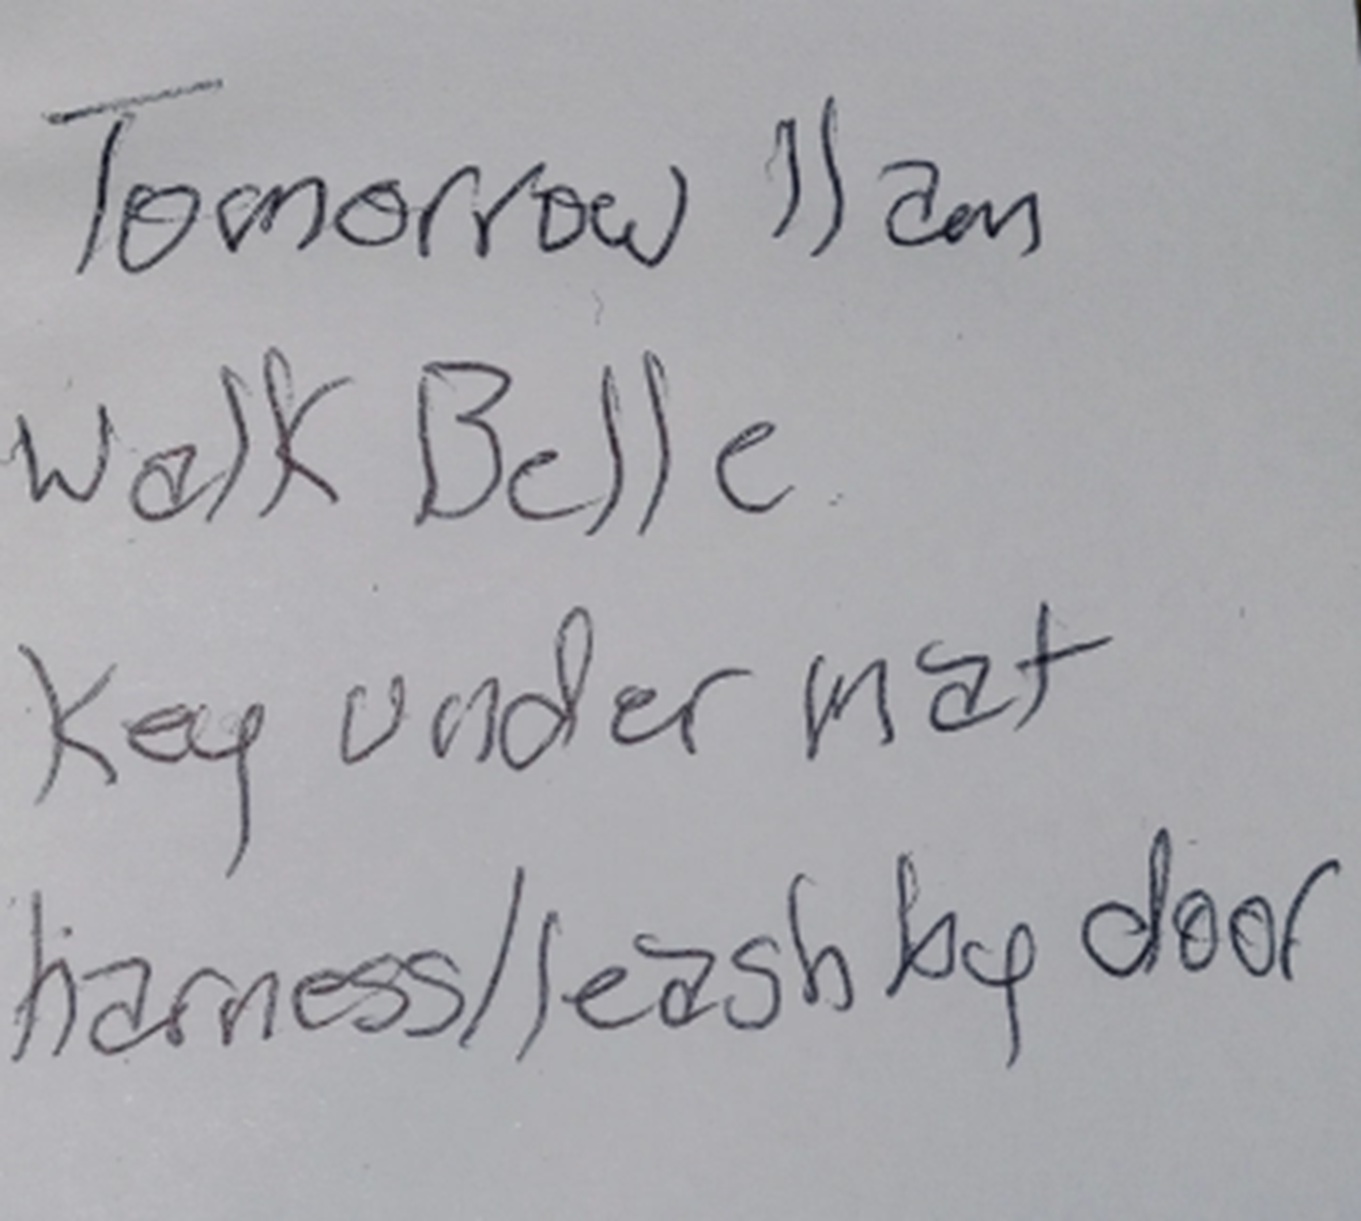 Tomorrow 11am
Walk Belle
Key under mat
harness/leash by door